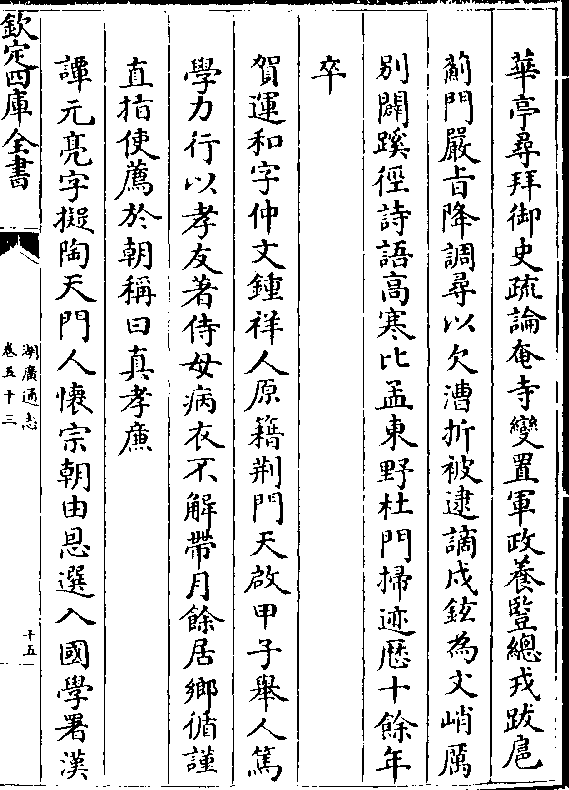 華亭尋拜御史疏論奄寺變置軍政養豎總戎跋扈
薊門嚴旨降調尋以欠漕折被逮謫戍鉉為文峭厲
別闢蹊徑詩語高寒比孟東野杜門掃迹歴十餘年
卒
賀運和字仲文鍾祥人原籍荆門天啟甲子舉人篤
學力行以孝友著侍母病衣不解帶月餘居鄉循謹
直指使薦於朝稱曰真孝廉
譚元亮字擬陶天門人懐宗朝由恩選入國學署漢
欽定四庫全書
湖廣通志
卷五十三
十五